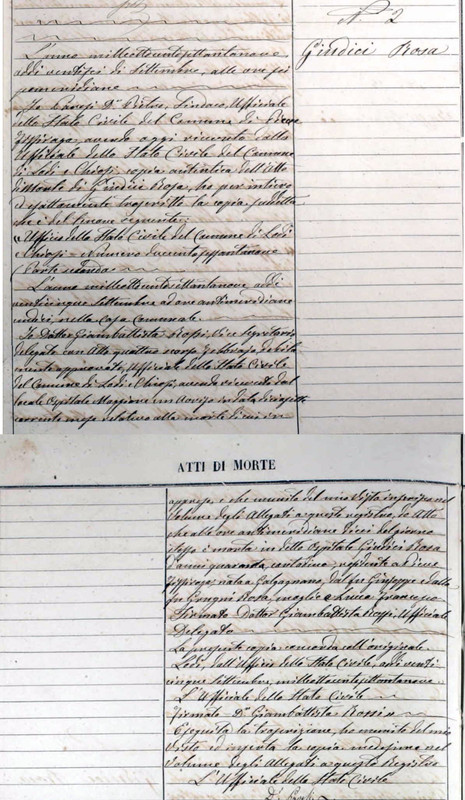 N. 2
Giudici Rosa
L'anno milleottocentosettantanove
addì ventisei di Settembre, alle ore sei
pomeridiane
Io Dr. Sindaco, Uffiziale
dello Stato Civile del Comune di Pieve
Fissiraga, avendo oggi ricevuto dallo
Uffiziale dello Stato Civile del Comune
di Lodi e Chiosi, copia autentica dell'atto
di Morte di Giudici Rosa, ho per intiero
ed esattamente trascritto la copia suddetta
che è del tenore seguente:
Ufficio dello Stato Civile del Comune di Lodi
Chiosi = Numero duecentosettantanove
Parte seconda
L'anno milleottocentosettantanove, addì
venticinque Settembre ad ore antimeridiane
undici, nella Casa Comunale
Io Dottor Giambattista Rossi, Vice Segretario
delegato con Atto quattro scorso Febbrajo, debita
mente approvato, Uffiziale dello Stato Civile
del Comune di Lodi Chiosi, avendo ricevuto dal
locale Ospitale Maggiore un Avviso in data
corrente mese relativo alla morte di cui in
ATTI DI MORTE
appresso, e che munito del mio Visto inserisco nel
Volume degli Allegati a questo registro, do Atto
che alle ore antimeridiane dieci del giorno
stesso è morta in detto Ospitale Giudici Rosa
d'anni quaranta, contadina, residente a Pieve
Fissiraga nata a Calvagnano, dal fu Giuseppe e dalla
fu Grugni Rosa, moglie a Luca Francesco
Firmato Dottor Giambattista Rossi, Uffiziale
Delegato
La presente copia concorda coll'originale
Lodi, dall'Ufficio dello Stato Civile, addì venti
cinque Settembre, milleottocentosettantanove
L'Uffiziale dello Stato Civile
firmato Dr. Giambattista Rossi
Eseguita la trascrizione, ho munito del mio
Visto ed inserta la copia medesima nel
volume degli Allegati a questo Registro
L'Uffiziale dello Stato Civile